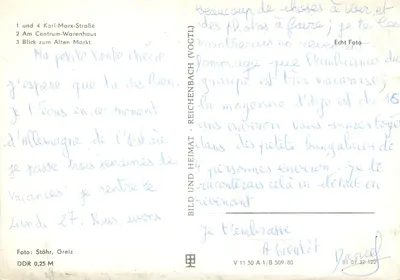 1 und 4 Karl-Marx-Straße
2 Am Centrum-Warenhaus
3 Blick zum Alten Markt
Ma petite chérie
J'espère que tu vas bien.
Je t'écris en ce moment
d'Allemagne de l'Est où
je passe trois semaines de
vacances. je rentre le
lundi 27. Nous avons
Foto: Stöhr, Greiz
DDR 0,25 M
BILD UND HEIMAT · REICHENBACH (VOGTL)
beaucoup de choses à voir et
des photos à faire; je te les
montrerai
Echt Foto
dommage que l'ambiance du
groupe est très mauvaise;
la moyenne d'âge est de 16
ans environ. Nous sommes logés
dans des petits bungalows de
4 personnes environ. Je te
raconterai cela en détail en
revenant
je t'embrasse
A bientôt
V 11 50 A 1/B 509/80
01 07 22 122